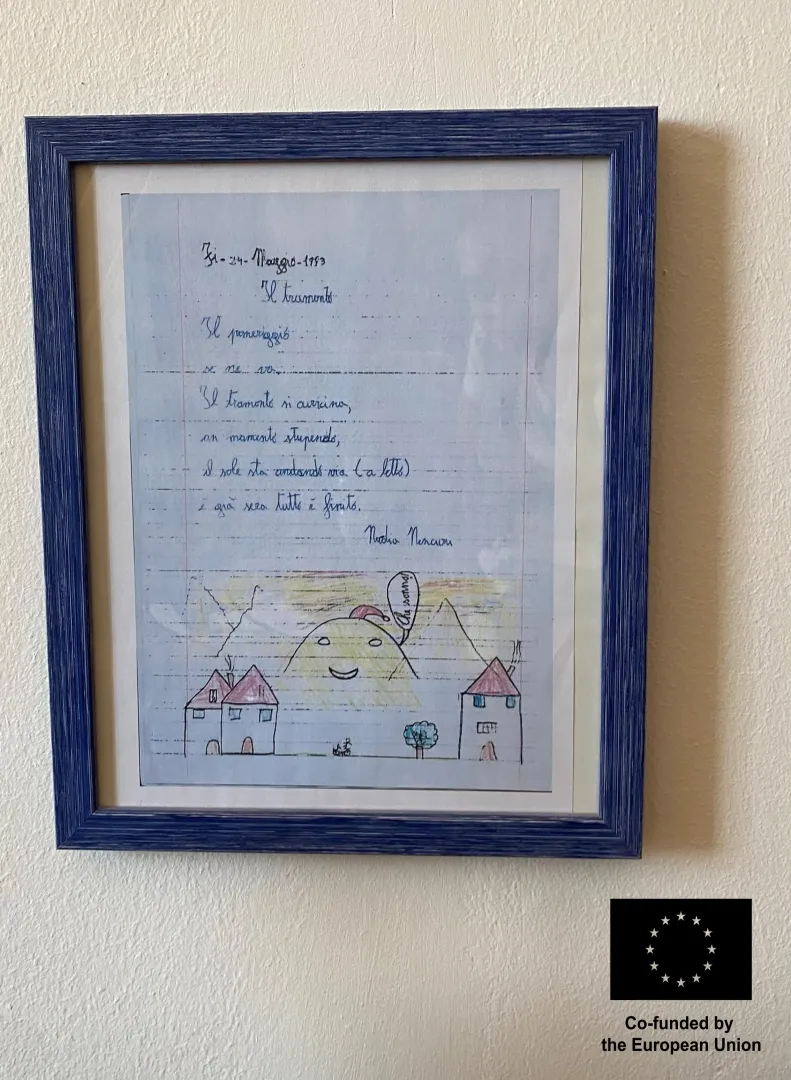 Fi-24-Maggio-1993
Il tramonto
Il pomeriggio
se ne va.
Il tramonto si avvicina,
un momento stupendo,
il sole sta andando via (a letto)
è già sera tutto è finito.
Nadia Nencioni
Che sonno!
Co-funded by
the European Union